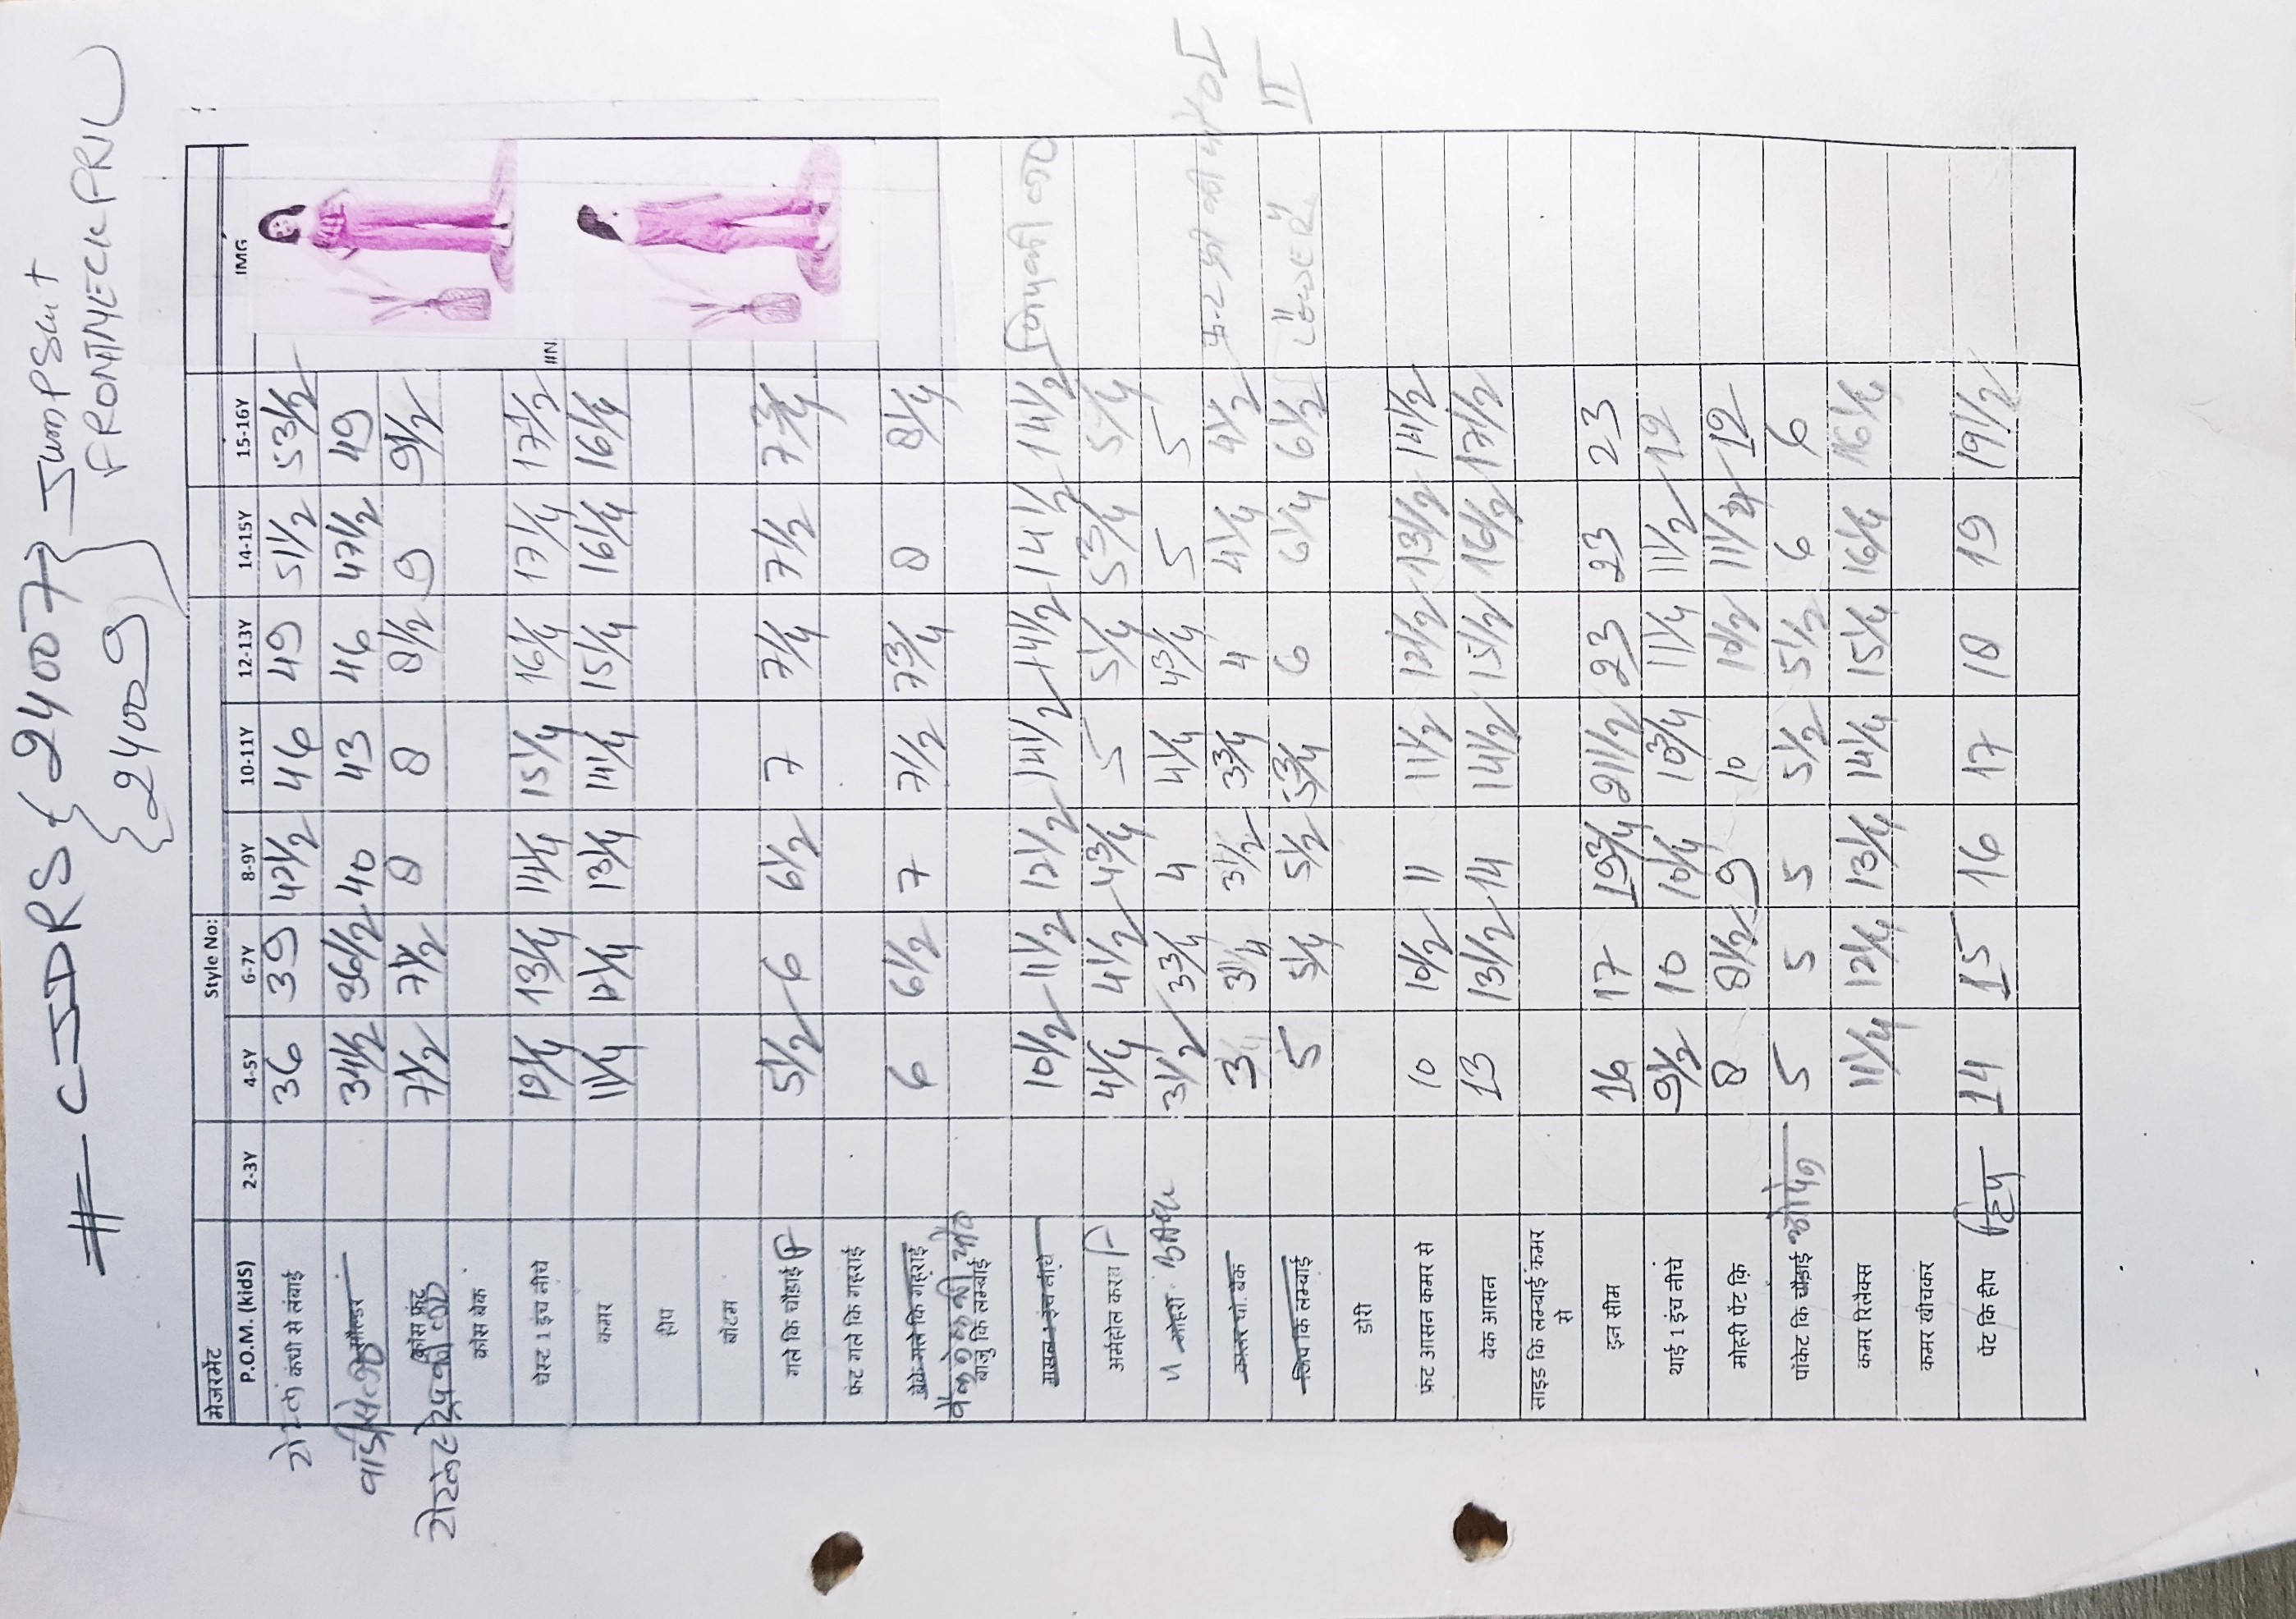 # CJDRS { 24007 } JumPSuit
{ 24009 } FRONTNECK FRIL
मेजरमेंट Style No:
P.O.M. (kidS) 2-3Y 4-5Y 6-7Y 8-9Y 10-11Y 12-13Y 14-15Y 15-16Y IMG
टोटल कंधी से लंबाई 36 39 42 1/2 46 49 51 1/2 53 1/2
सौल्डर 34 1/2 36 1/2 40 43 46 47 1/2 49
क्रॉस फ्रंट 7 1/2 7 1/2 8 8 8 1/2 9 9 1/2
क्रॉस बेक
चेस्ट 1 इंच नीचे 12 1/4 13 1/4 14 1/4 15 1/4 16 1/4 17 1/4 17 1/2
कमर 11 1/4 12 1/4 13 1/4 14 1/4 15 1/4 16 1/4 16 1/4
हीप #N
बोटम
गले कि चौडाई F 5 1/2 6 6 1/2 7 7 1/4 7 1/2 7 3/4
फ्रंट गले कि गहराई
बेक गले कि गहराई 6 6 1/2 7 7 1/2 7 3/4 8 8 1/4
बाजु कि लम्बाई
मसल 1 इंच नीचे 10 1/2 11 1/2 12 1/2 14 1/2 14 1/2 14 1/2 14 1/2
अर्महोल करव F 4 1/4 4 1/2 4 3/4 5 5 1/4 5 3/4 5 1/4
मोहरी BACK 3 1/2 3 3/4 4 4 1/4 4 3/4 5 5
कालर पो. बेक 3 3 1/4 3 1/2 3 3/4 4 4 1/4 4 1/2
जिप कि लम्बाई 5 5 1/4 5 1/2 5 3/4 6 6 1/4 6 1/2 LOWER
डोरी
फ्रंट आसन कमर से 10 10 1/2 11 11 1/2 12 1/2 13 1/2 14 1/2
बेक आसन 13 13 1/2 14 14 1/2 15 1/2 16 1/2 17 1/2
साइड कि लम्बाई कमर से
इन सीम 16 17 19 3/4 21 1/2 23 23 23
थाई 1 इंच नीचे 9 1/2 10 10 1/4 10 3/4 11 1/4 11 1/2 12
मोहरी पेंट कि 8 8 1/2 9 10 10 1/2 11 1/2 12
पॉकेट कि चौडाई ओपन 5 5 5 5 1/2 5 1/2 6 6
कमर रिलैक्स 11 1/4 12 1/4 13 1/4 14 1/4 15 1/4 16 1/4 16 1/4
कमर खीचकर
पेंट कि हीप हिप 14 15 16 17 18 19 19 1/2